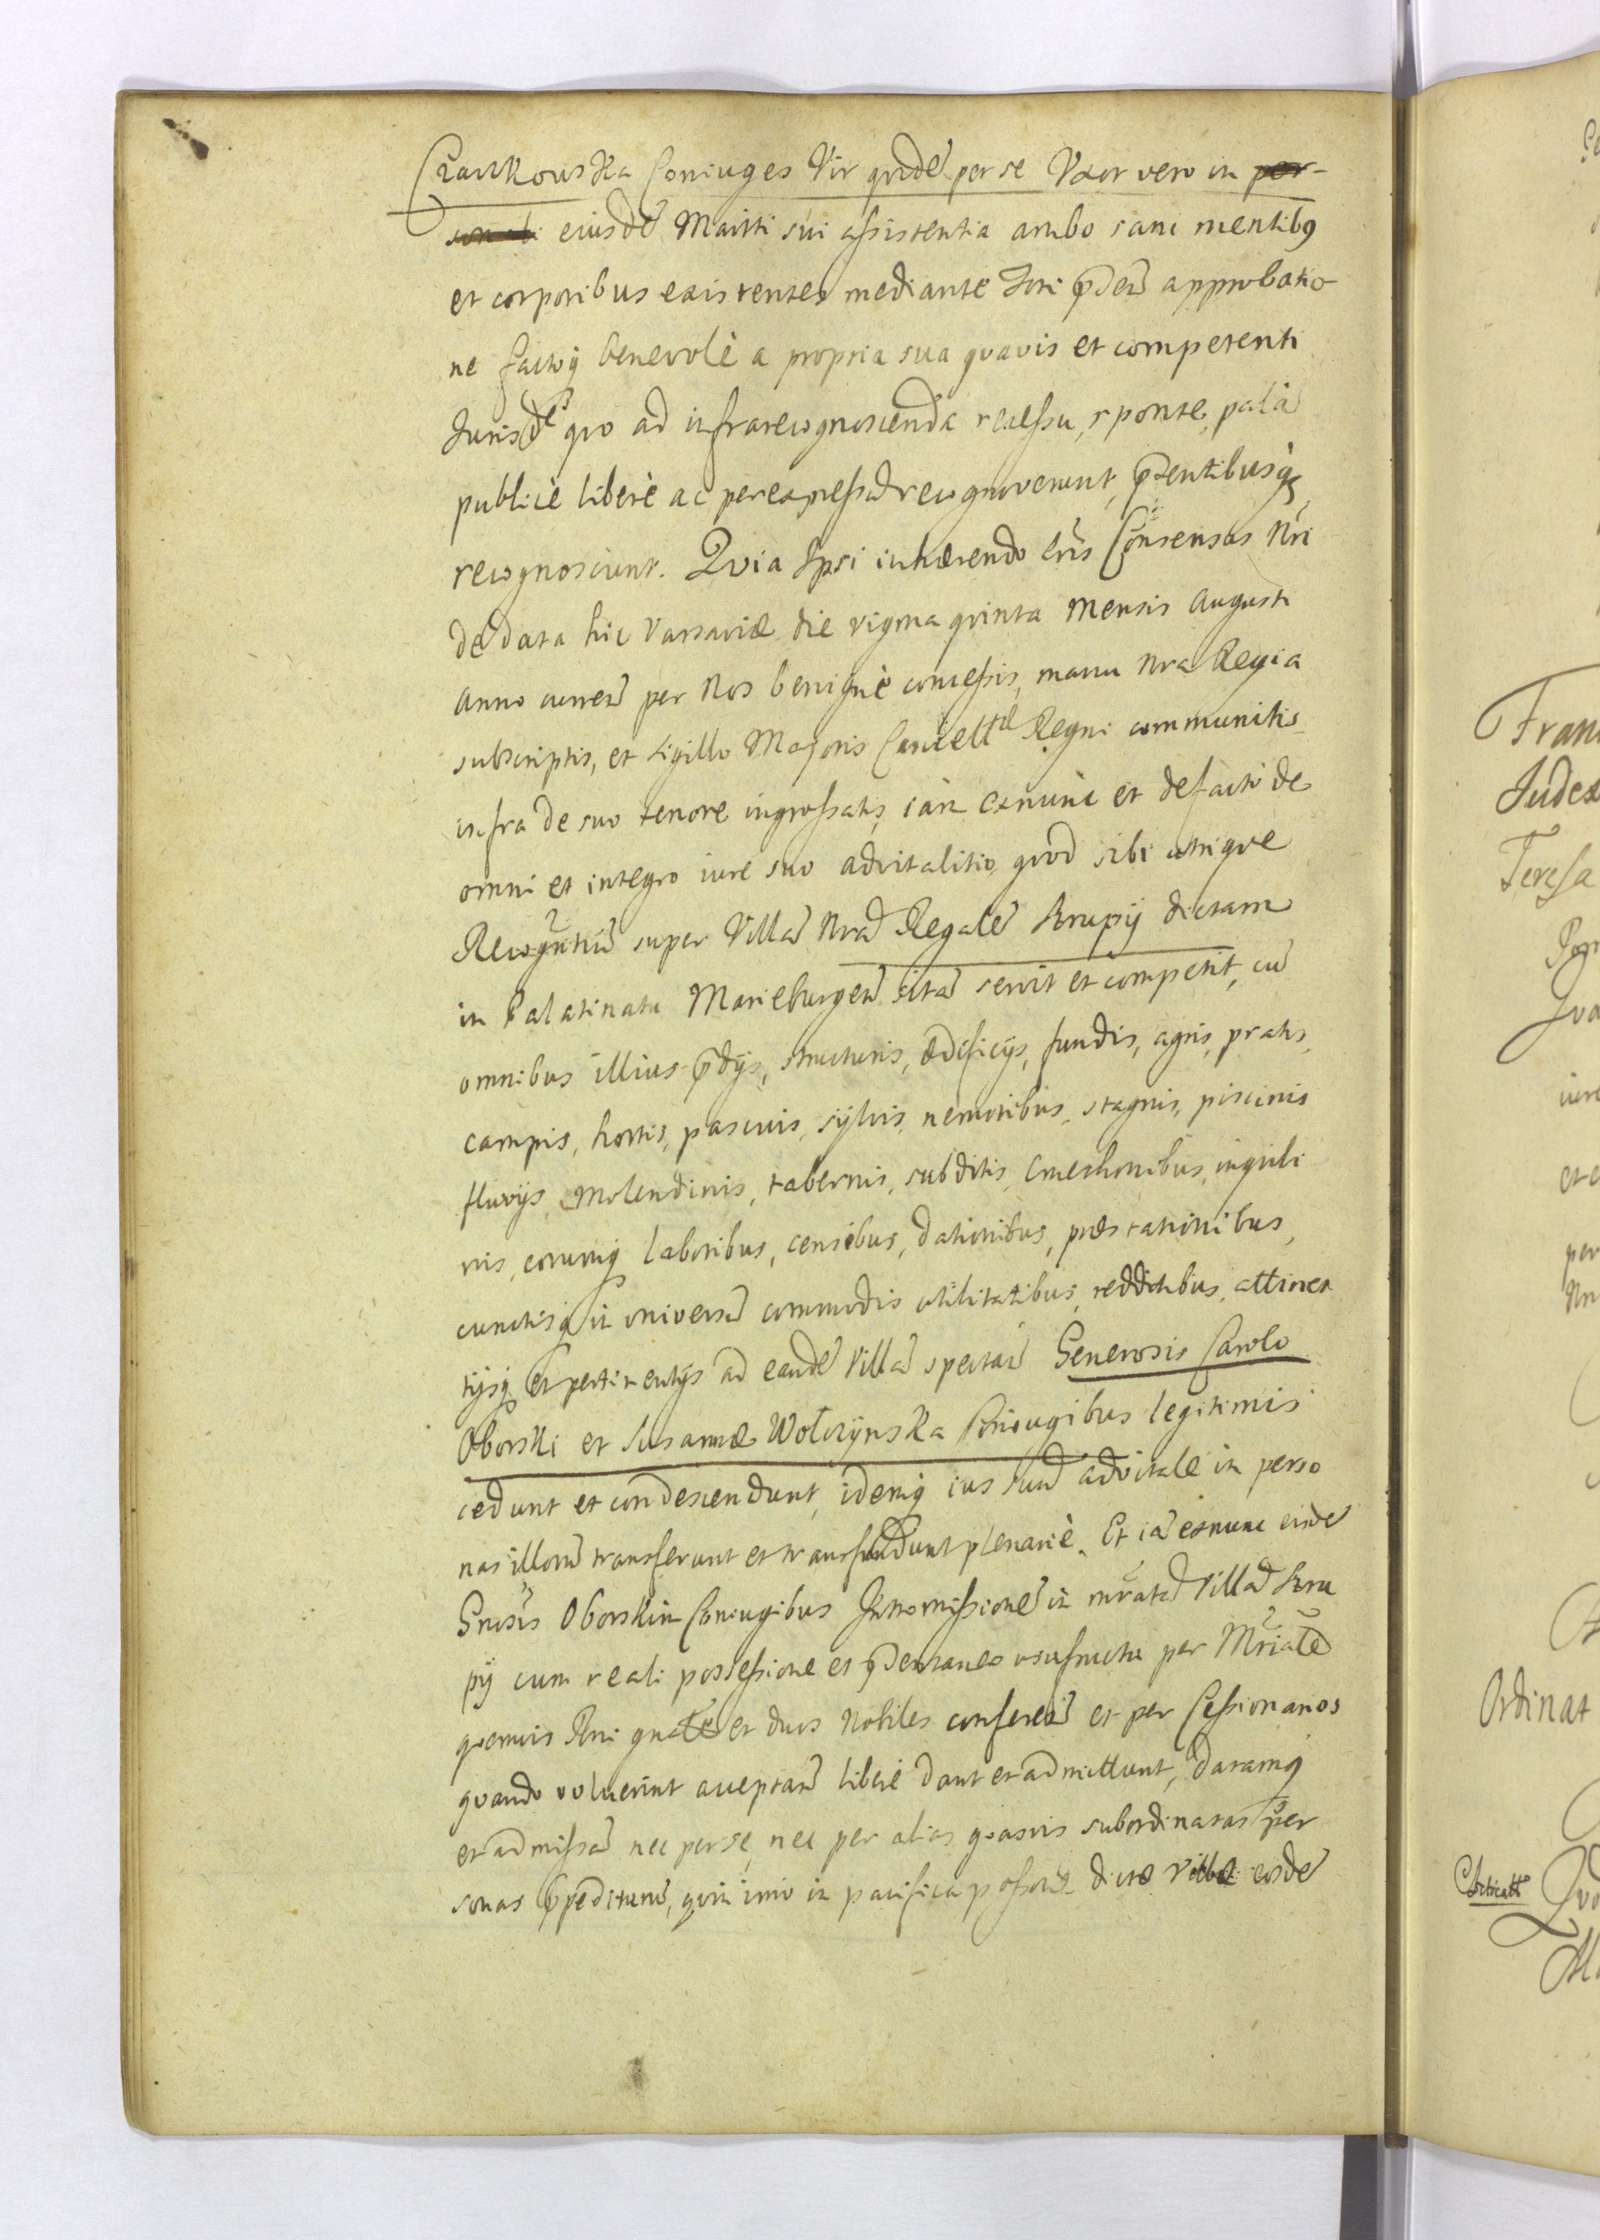 Czarnkowska Coniuges Vir quidē per se Uxor vero in per-
sonali eiusdē Mariti sui assistentia ambo sani mentibq
et corporibus existentes mediante Fori pñtis approbatio
ne factaq benevolè a propria sua quavis et competenti
Jurisdne quo ad infrarecognoscenda recessu, sponte, palā
publicè liberè ac per expressū recognoverunt, pñtentibusq
recognoscunt. Quia Ipsi inhærendo lris Consensus Nri
dē data hic Varsaviæ die vigma quinta Mensis Augusti
Anno currenē per Nos benignè concessis, manu Nra Regia
subscriptis, et sigillo Majoris Cancellæ Regni communitis
infra de suo tenore ingrossatis, iam exnunc et defacto de
omni et integro iure suo advitalitio, quod sibi utrique
Recognñtiū super Villā Nrā Regalē Krupij dictam
in Palatinatu Marieburgen sitā servit et competit, cū
omnibus illius pdijs, structuris, ædificijs, fundis, agris, pratis,
campis, hortis, pascuis, sylvis, nemoribus, stagnis, piscinis
fluvijs, Molendinis, tabernis, subditis, Cmethonibus, inquili
nis, eorumq laboribus, censibus, dationibus, præstationibus,
cunctisq in universū commodis utilitatibus, redditibus, attinen
tijsq et pertinentijs ad eandē Villā spectan Generosis Carolo
Oborski et Susannæ Wołczynska Coniugibus legitimis
cedunt et condescendunt, idemq ius suū advitale in perso
nas illorū transferunt et transfundunt plenariè. Et iā exnunc eisdē
Gnosis Oborskim Coniugibus Intromissionē in mratā Villā Kru
pij cum reali possessione et pñtentaneo usufructu per Mriale
quemvis Rni gnalē et duos Nobiles conferen et per Cessionarios
quando voluerint acceptan liberè dant et admittunt, datamq
et admissā nec per se, nec per alias quasvis subordinatas per
sonas impeditum, quin imo in pacifica possone dictæ Villæ eosdē